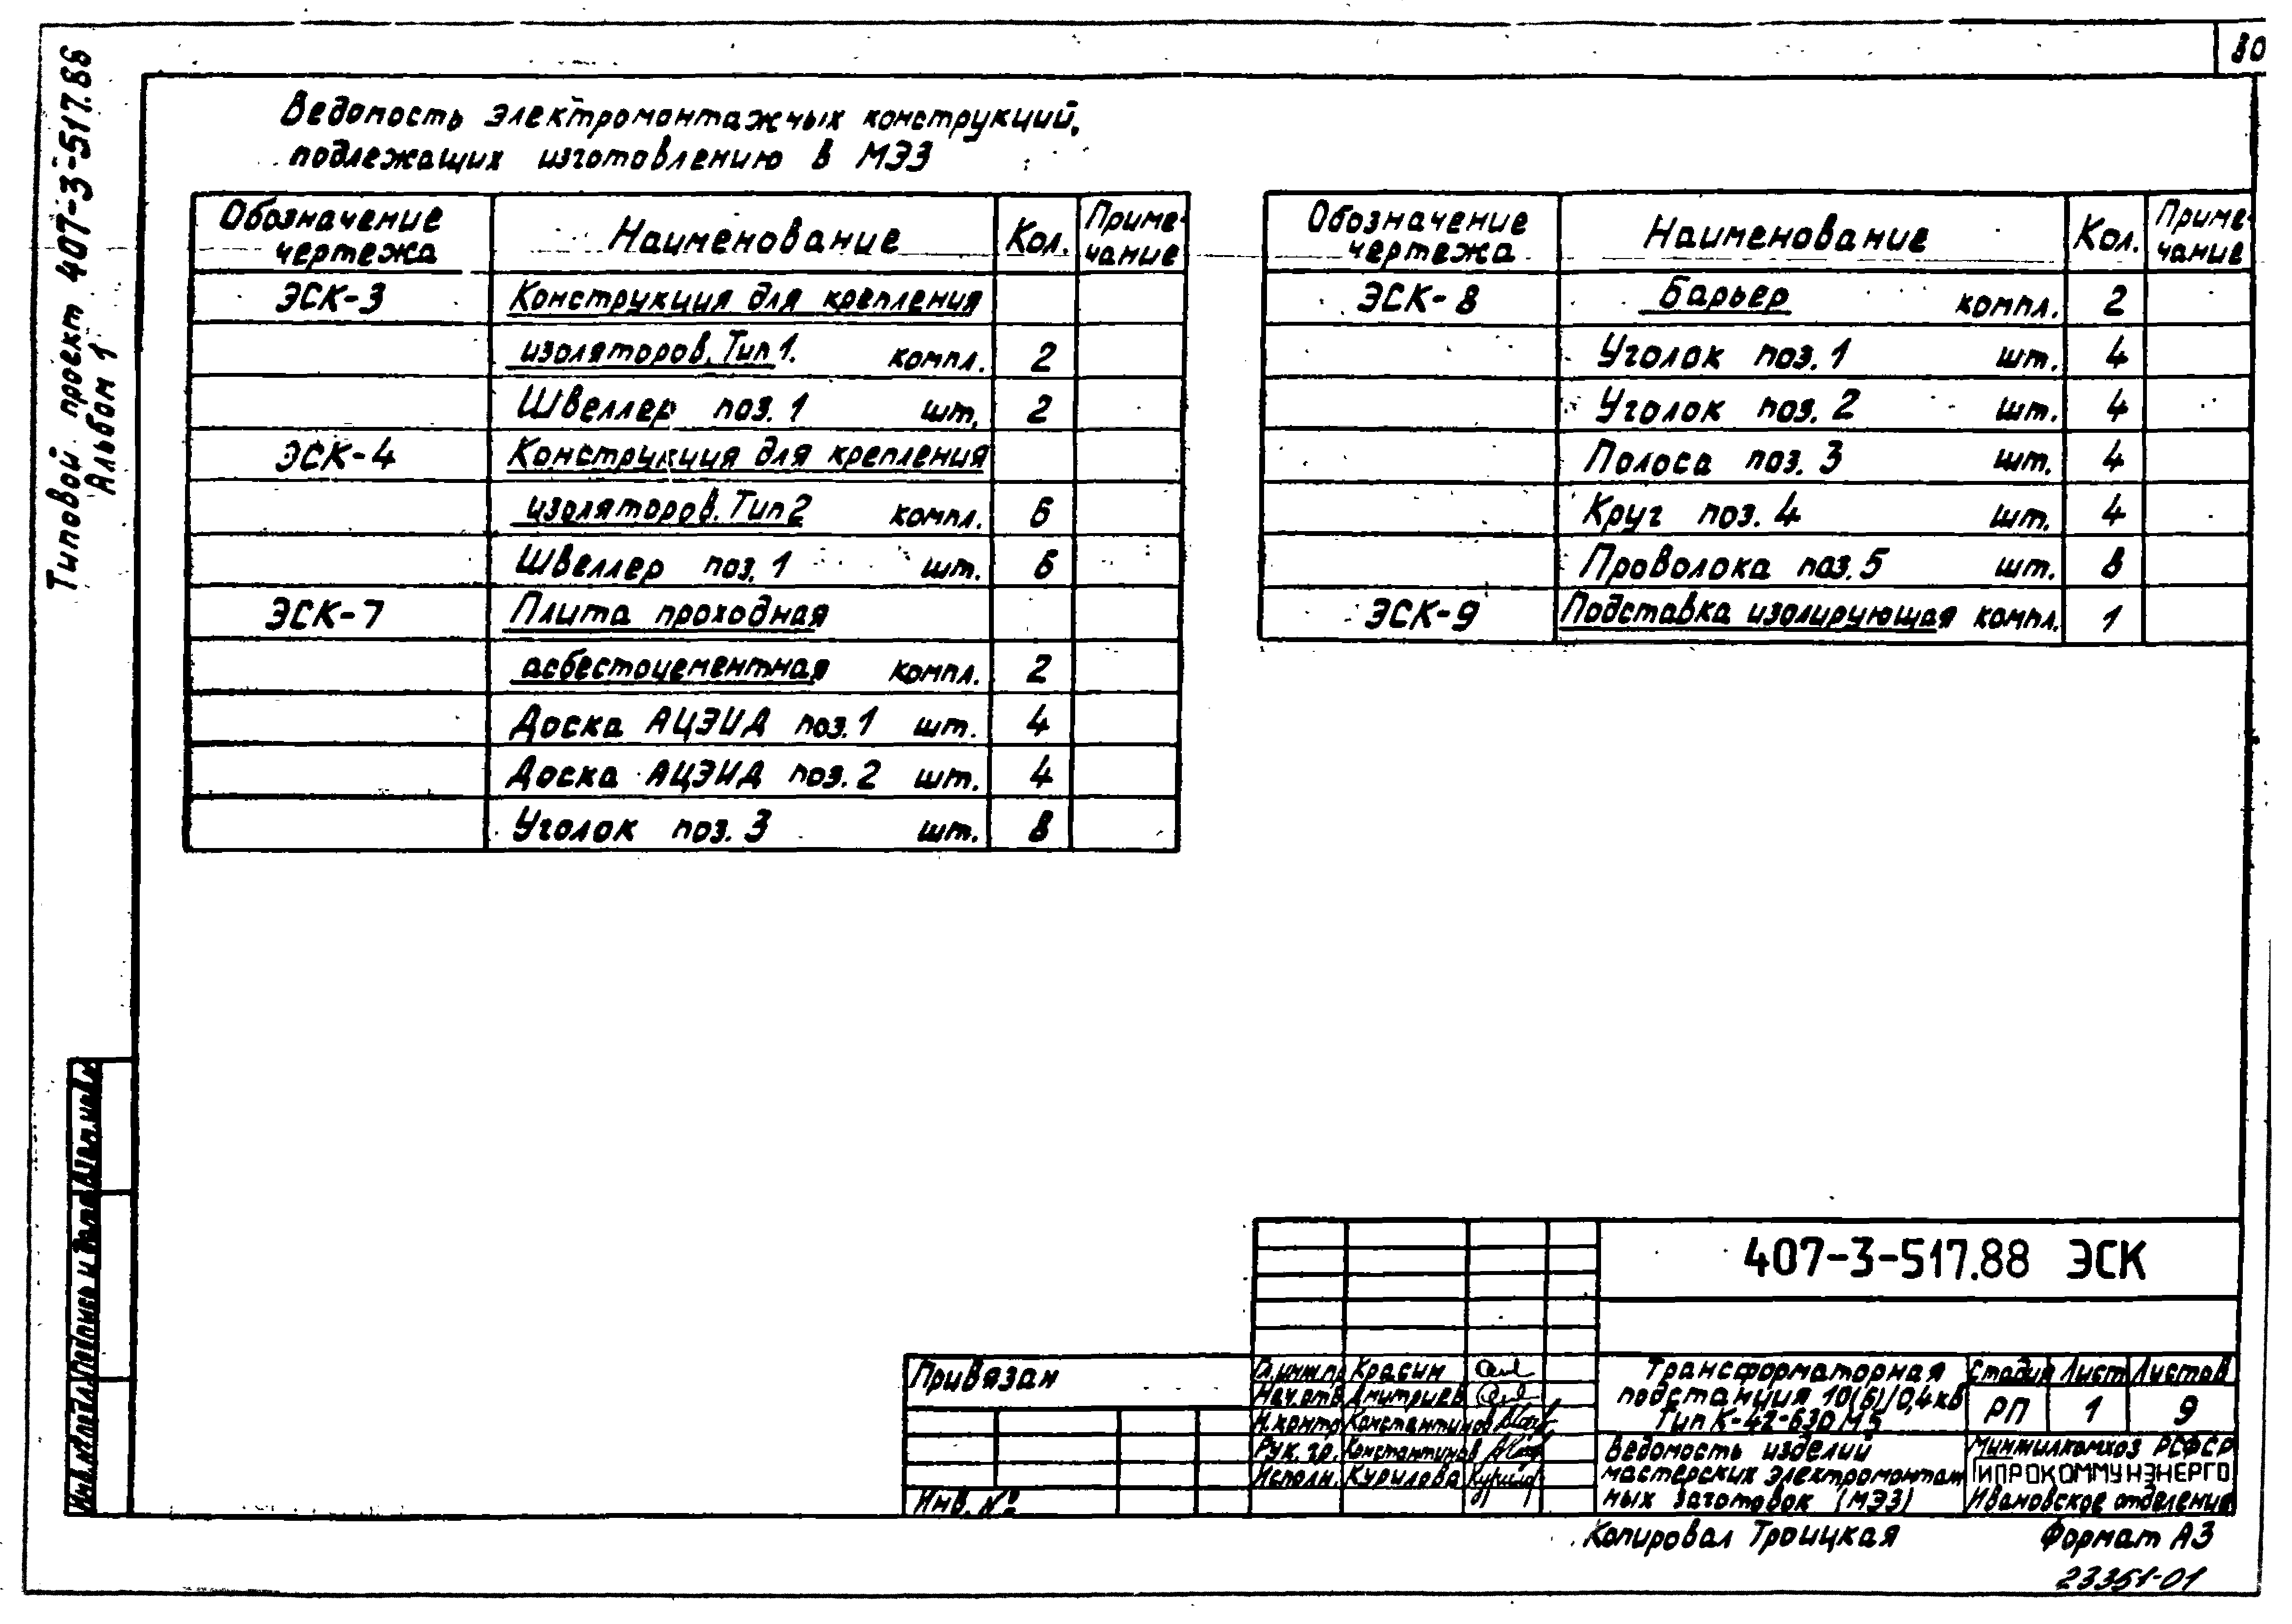 80
Типовой проект 407-3-517.88
Альбом 1
Ведомость электромонтажных конструкций,
подлежащих изготовлению в МЭЗ
Обозначение чертежа Наименование Кол. Приме-чание
ЭСК-3 Конструкция для крепления
изоляторов. Тип 1. компл. 2
Швеллер поз. 1 шт. 2
ЭСК-4 Конструкция для крепления
изоляторов. Тип 2 компл. 6
Швеллер поз. 1 шт. 6
ЭСК-7 Плита проходная
асбестоцементная компл. 2
Доска АЦЭИД поз. 1 шт. 4
Доска АЦЭИД поз. 2 шт. 4
Уголок поз. 3 шт. 8
Обозначение чертежа Наименование Кол. Приме-чание
ЭСК-8 Барьер компл. 2
Уголок поз. 1 шт. 4
Уголок поз. 2 шт. 4
Полоса поз. 3 шт. 4
Круг поз. 4 шт. 4
Проволока поз. 5 шт. 8
ЭСК-9 Подставка изолирующая компл. 1
Инв. № подл. Подпись и дата Взам. инв. №
407-3-517.88 ЭСК
Привязан
Инв. №
Гл. инж. пр. Красин
Нач. отд. Дмитриев
Н. контр. Константинов
Рук. гр. Константинов
Исполн. Курилова
Трансформаторная
подстанция 10(6)/0,4кв
Тип К-42-630 М5
Стадия Лист Листов
РП 1 9
Ведомость изделий
мастерских электромонтаж
ных заготовок (МЭЗ)
Минжилкомхоз РСФСР
ГИПРОКОММУНЭНЕРГО
Ивановское отделение
Копировал Троицкая Формат А3
23351-01